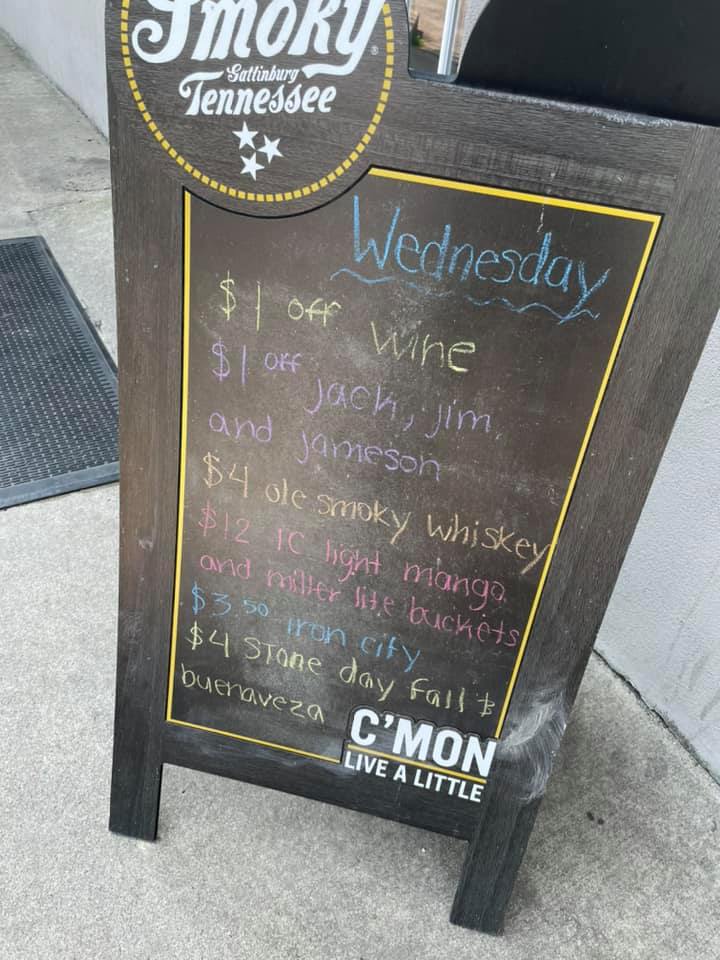 Smoky
Gatlinburg
Tennessee
Wednesday
$1 off wine
$1 off jack, jim
and jameson
$4 ole smoky whiskey
$12 IC light mango
and miller lite buckets
$3.50 iron city
$4 Stone day fall &
buenaveza
C'MON
LIVE A LITTLE